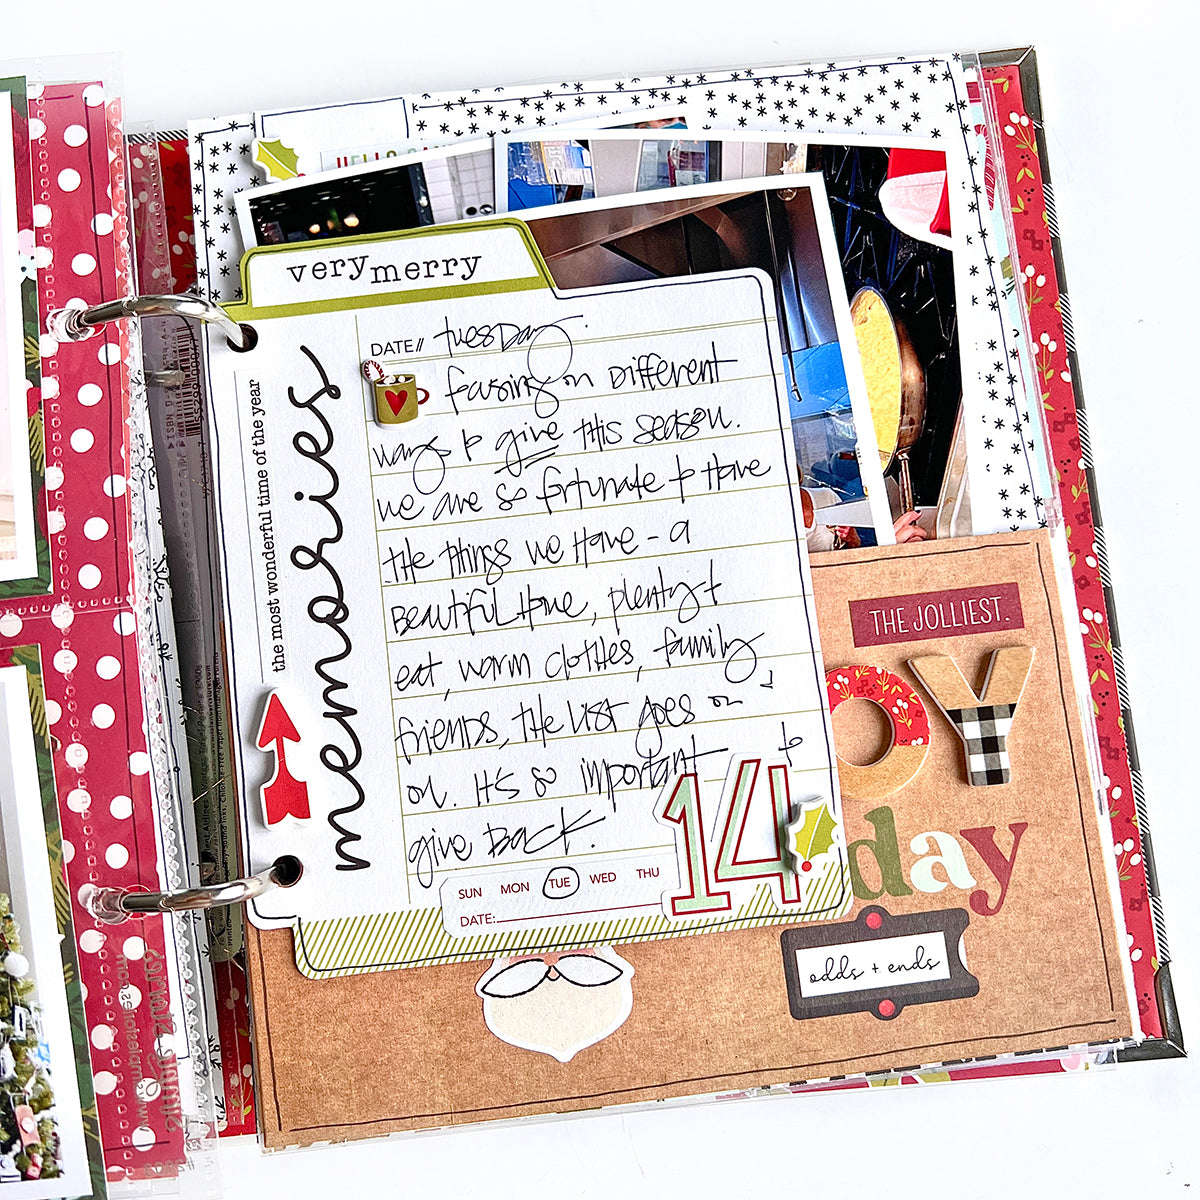 HELLO
very merry
DATE// tuesday.
focusing on different
ways to give this season.
we are so fortunate to have
the things we have - a
beautiful home, plenty to
eat, warm clothes, family,
friends, the list goes on
on. It's so important to
give back.
memories
the most wonderful time of the year
14
SUN MON TUE WED THU
DATE:
THE JOLLIEST.
OY
day
odds + ends
Simple Stories